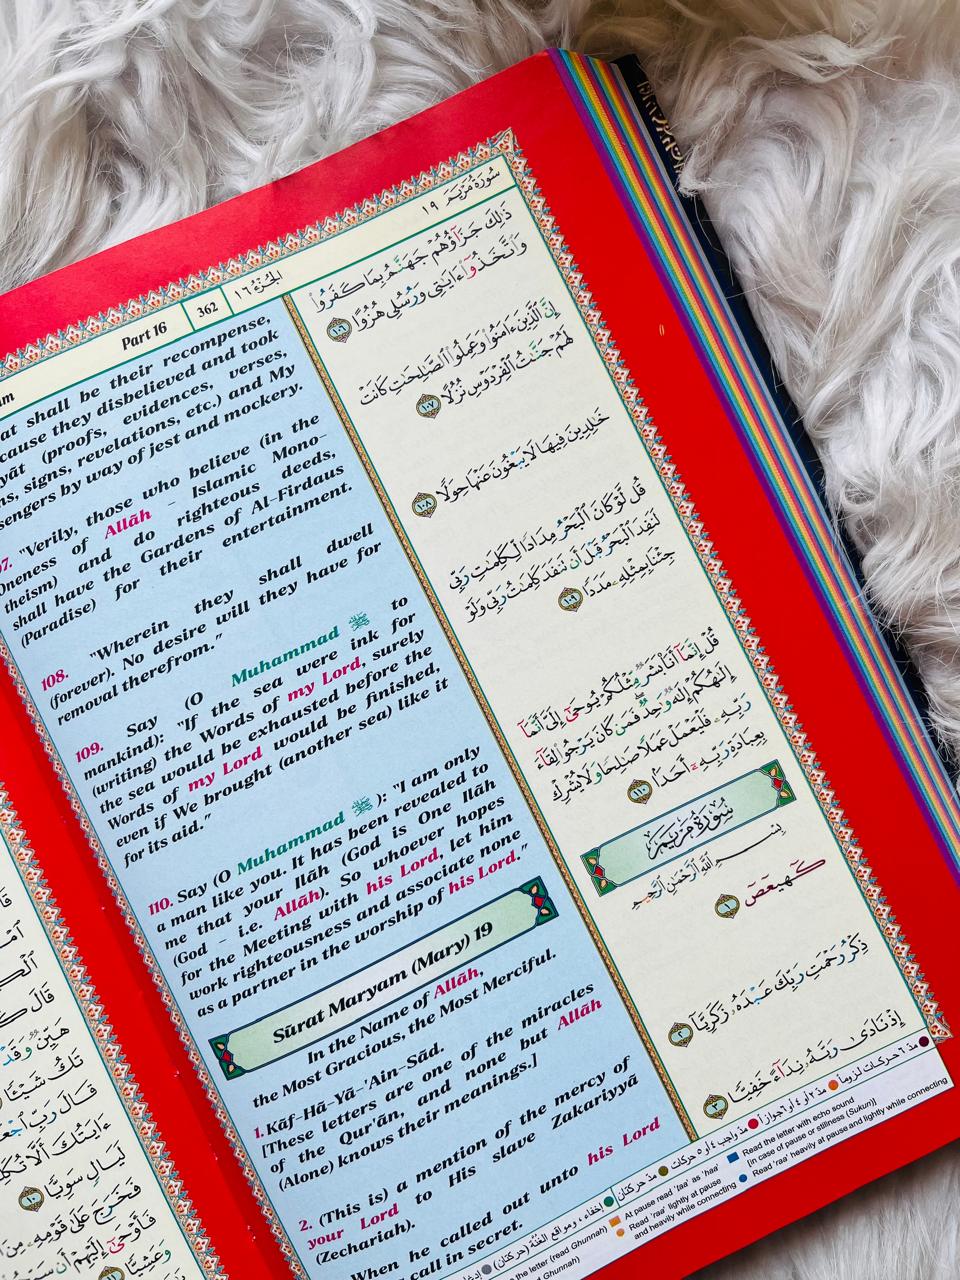 Part 16
362
الجزء ١٦
سورة مريم ١٩
at shall be their recompense,
cause they disbelieved and took
yāt (proofs, evidences, verses,
ns, signs, revelations, etc.) and My
sengers by way of jest and mockery.
07. "Verily, those who believe (in the
Oneness of Allāh – Islamic Mono-
theism) and do righteous deeds,
shall have the Gardens of Al-Firdaus
(Paradise) for their entertainment.
108. "Wherein they shall dwell
(forever). No desire will they have for
removal therefrom."
109. Say (O Muhammad ﷺ to
mankind): "If the sea were ink for
(writing) the Words of my Lord, surely
the sea would be exhausted before the
Words of my Lord would be finished,
even if We brought (another sea) like it
for its aid."
110. Say (O Muhammad ﷺ): "I am only
a man like you. It has been revealed to
me that your Ilāh (God is One Ilāh
(God – i.e. Allāh). So whoever hopes
for the Meeting with his Lord, let him
work righteousness and associate none
as a partner in the worship of his Lord."
Sūrat Maryam (Mary) 19
In the Name of Allāh,
the Most Gracious, the Most Merciful.
1. Kāf-Hā-Yā-'Ain-Sād.
[These letters are one of the miracles
of the Qur'ān, and none but Allāh
(Alone) knows their meanings.]
2. (This is) a mention of the mercy of
your Lord to His slave Zakariyyā
(Zechariah).
When he called out unto his Lord
call in secret.
ذَٰلِكَ جَزَاؤُهُمْ جَهَنَّمُ بِمَا كَفَرُوا
وَاتَّخَذُوا ءَايَٰتِى وَرُسُلِى هُزُوًا ١٠٦
إِنَّ الَّذِينَ ءَامَنُوا وَعَمِلُوا الصَّٰلِحَٰتِ كَانَتْ
لَهُمْ جَنَّٰتُ الْفِرْدَوْسِ نُزُلًا ١٠٧
خَٰلِدِينَ فِيهَا لَا يَبْغُونَ عَنْهَا حِوَلًا ١٠٨
قُل لَّوْ كَانَ الْبَحْرُ مِدَادًا لِّكَلِمَٰتِ رَبِّى
لَنَفِدَ الْبَحْرُ قَبْلَ أَن تَنفَدَ كَلِمَٰتُ رَبِّى وَلَوْ
جِئْنَا بِمِثْلِهِۦ مَدَدًا ١٠٩
قُلْ إِنَّمَا أَنَا بَشَرٌ مِّثْلُكُمْ يُوحَىٰ إِلَىَّ أَنَّمَا
إِلَٰهُكُمْ إِلَٰهٌ وَٰحِدٌ فَمَن كَانَ يَرْجُوا لِقَاءَ
رَبِّهِۦ فَلْيَعْمَلْ عَمَلًا صَٰلِحًا وَلَا يُشْرِكْ
بِعِبَادَةِ رَبِّهِۦٓ أَحَدًا ١١٠
سُورَةُ مَرْيَمَ
بِسْمِ اللَّهِ الرَّحْمَٰنِ الرَّحِيمِ
كٓهيعٓصٓ ١
ذِكْرُ رَحْمَتِ رَبِّكَ عَبْدَهُۥ زَكَرِيَّا ٢
إِذْ نَادَىٰ رَبَّهُۥ نِدَاءً خَفِيًّا ٣
مدّ ٦ حركات لزوماً مدّ ٢ أو ٤ أو ٦ جوازاً
مدّ واجب ٤ أو ٥ حركات مدّ حركتان
إخفاء، ومواقع الغُنَّة (حركتان)
At pause read 'taa' as 'haa'
Read the letter with echo sound
[in case of pause or stillness (Sukun)]
Read 'raa' lightly at pause
and heavily while connecting
Read 'raa' heavily at pause and lightly while connecting
the letter (read Ghunnah)
d Ghunnah)